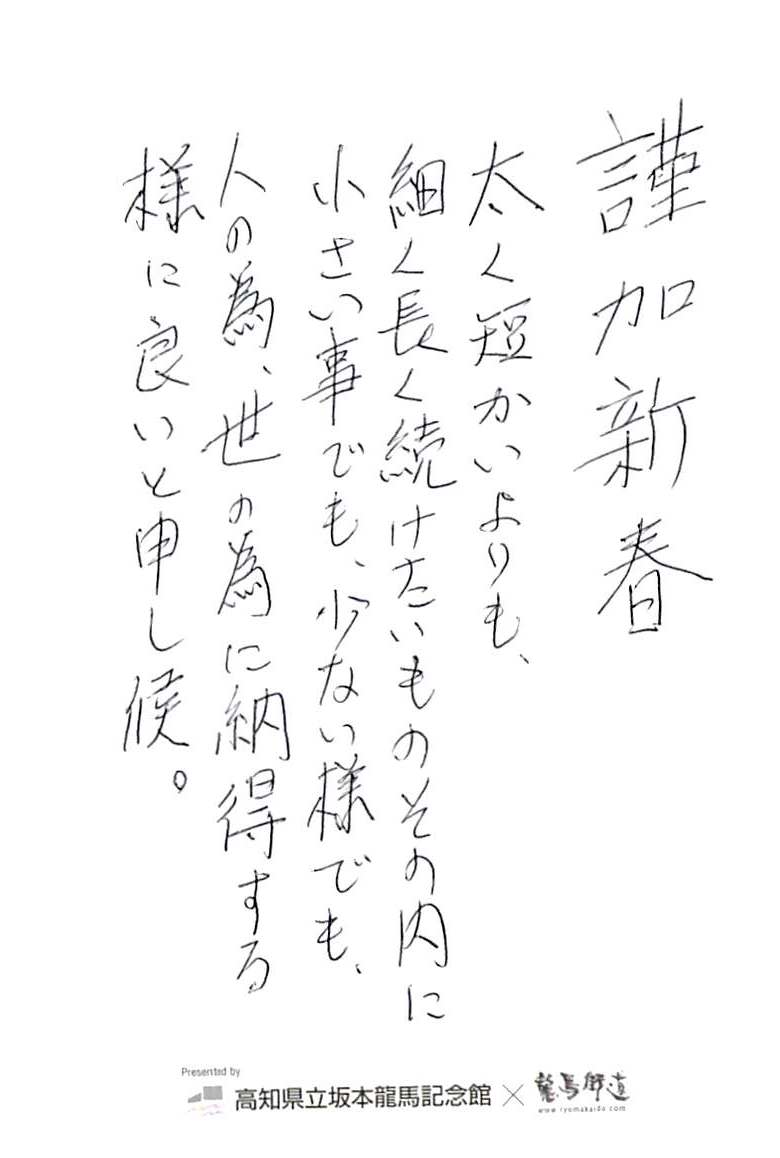 謹加新春
太く短かいよりも、
細く長く続けたいものその内に
小さい事でも、少ない様でも、
人の為、世の為に納得する
様に良いと申し候。
Presented by
高知県立坂本龍馬記念館 × 龍馬街道
www.ryomakaido.com